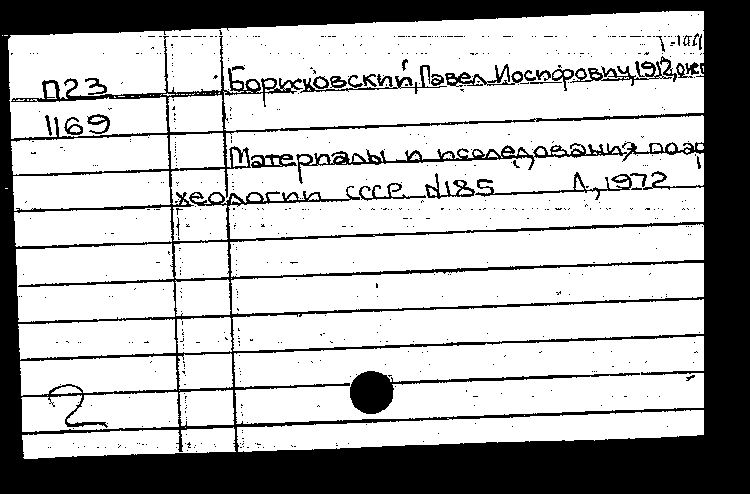 П23 Борисковский, Павел Иосифович, 1912,
1169
Материалы и исследования по ар
хеологии СССР. N185 Л., 1972
2